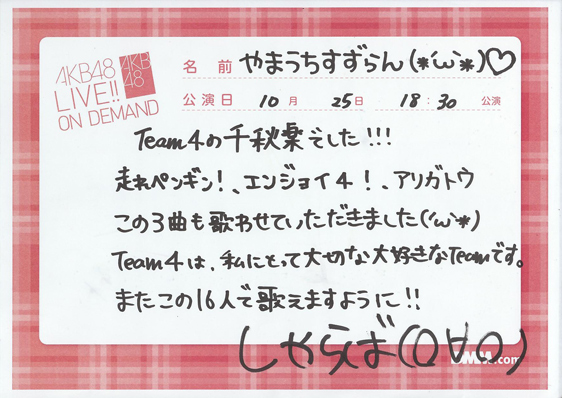 AKB48
LIVE!!
ON DEMAND
AKB
48
名前 やまうちすずらん(*´ω`*)♡
公演日 10月 25日 18:30 公演
Team4の千秋楽でした!!!
走れペンギン!、エンジョイ4!、アリガトウ
この3曲も歌わせていただきました(´ω`*)
Team4は、私にとって大切な大好きなTeamです。
またこの16人で歌えますように!!
しゃらば(0∀0)
.com